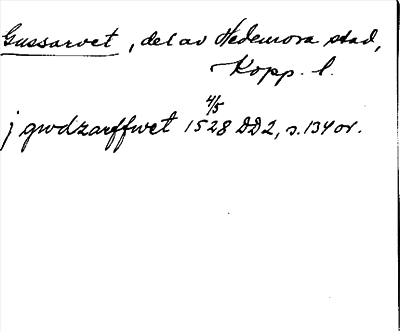 Gussarvet, del av Hedemora stad,
Kopp. l.
4/5
j gwdzarffwet 1528 DD2, s. 134 or.